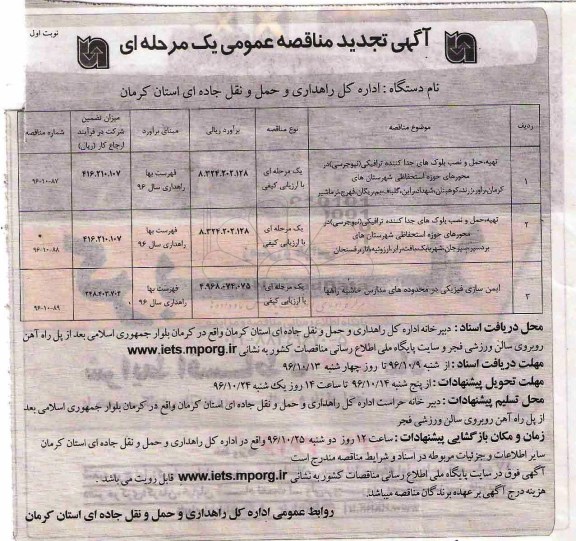 نوبت اول
آگهی تجدید مناقصه عمومی یک مرحله ای
نام دستگاه : اداره کل راهداری و حمل و نقل جاده ای استان کرمان
ردیف
موضوع مناقصه
نوع مناقصه
برآورد ریالی
مبنای برآورد
میزان تضمین شرکت در فرآیند ارجاع کار (ریال)
شماره مناقصه
۱
تهیه،حمل و نصب بلوک های جدا کننده ترافیکی(نیوجرسی)در
محورهای حوزه استحفاظی شهرستان های
کرمان،راور،زرند،کوهبنان،شهداد،راین،گلباف،بم،ریگان،فهرج،نرماشیر
یک مرحله ای با ارزیابی کیفی
۸.۳۲۴.۲۰۲.۱۲۸
فهرست بها راهداری سال ۹۶
۴۱۶.۲۱۰.۱۰۷
۹۶-۱۰-۸۷
۲
تهیه،حمل و نصب بلوک های جدا کننده ترافیکی(نیوجرسی)در
محورهای حوزه استحفاظی شهرستان های
بردسیر،سیرجان،شهربابک،بافت،رابر،ارزوئیه،انار،رفسنجان
یک مرحله ای با ارزیابی کیفی
۸.۳۲۴.۲۰۲.۱۲۸
فهرست بها راهداری سال ۹۶
۴۱۶.۲۱۰.۱۰۷
۹۶-۱۰-۸۸
۳
ایمن سازی فیزیکی در محدوده های مدارس حاشیه راهها
یک مرحله ای با ارزیابی کیفی
۴.۹۶۸.۰۷۴.۰۷۵
فهرست بها راهداری سال ۹۶
۲۴۸.۴۰۳.۷۰۴
۹۶-۱۰-۸۹
محل دریافت اسناد : دبیر خانه اداره کل راهداری و حمل و نقل جاده ای استان کرمان واقع در کرمان بلوار جمهوری اسلامی بعد از پل راه آهن
روبروی سالن ورزشی فجر و سایت پایگاه ملی اطلاع رسانی مناقصات کشور به نشانی www.iets.mporg.ir
مهلت دریافت اسناد : از شنبه ۹۶/۱۰/۹ تا روز چهار شنبه ۹۶/۱۰/۱۳
مهلت تحویل پیشنهادات : از پنج شنبه ۹۶/۱۰/۱۴ تا ساعت ۱۴ روز یک شنبه ۹۶/۱۰/۲۴
محل تسلیم پیشنهادات : دبیر خانه حراست اداره کل راهداری و حمل و نقل جاده ای استان کرمان واقع در کرمان بلوار جمهوری اسلامی بعد
از پل راه آهن روبروی سالن ورزشی فجر
زمان و مکان بازگشایی پیشنهادات : ساعت ۱۲ روز دو شنبه ۹۶/۱۰/۲۵ واقع در اداره کل راهداری و حمل و نقل جاده ای استان کرمان
سایر اطلاعات و جزئیات مربوطه در اسناد و شرایط مناقصه مندرج است
آگهی فوق در سایت پایگاه ملی اطلاع رسانی مناقصات کشور به نشانی www.iets.mporg.ir قابل رویت می باشد .
هزینه درج آگهی بر عهده برندگان مناقصه میباشد.
روابط عمومی اداره کل راهداری و حمل و نقل جاده ای استان کرمان